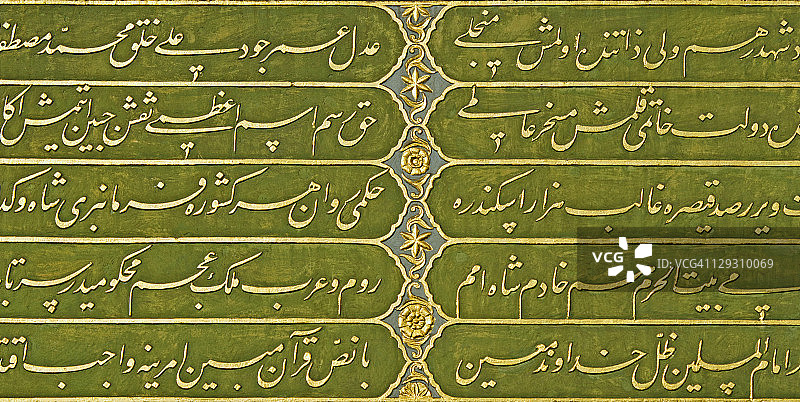 شهدر هم ولی ذاتنده اولمش منجلی عدل عمر جود علی خلق محمد مصطفی
دولت خاتمی قلمش مسخر عالمی حق رسم اسم اعظمی نقش جبین ایتمش اکا
ویرر صد قیصره غالب هزار اسکندره حکمی روان هر کشوره فرمانبری شاه و کدا
بیت الحرم هم خادم شاه امم روم و عرب ملک عجم محکومیدر
امام المسلمین ظل خداوند معین با نص قرآن مبین امرینه واجب
VCG VCG41129310069